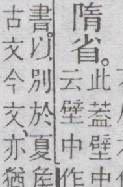 隋省。
此蓋壁中
云壁中作
書。以別於夏矦
古文今文、亦猶